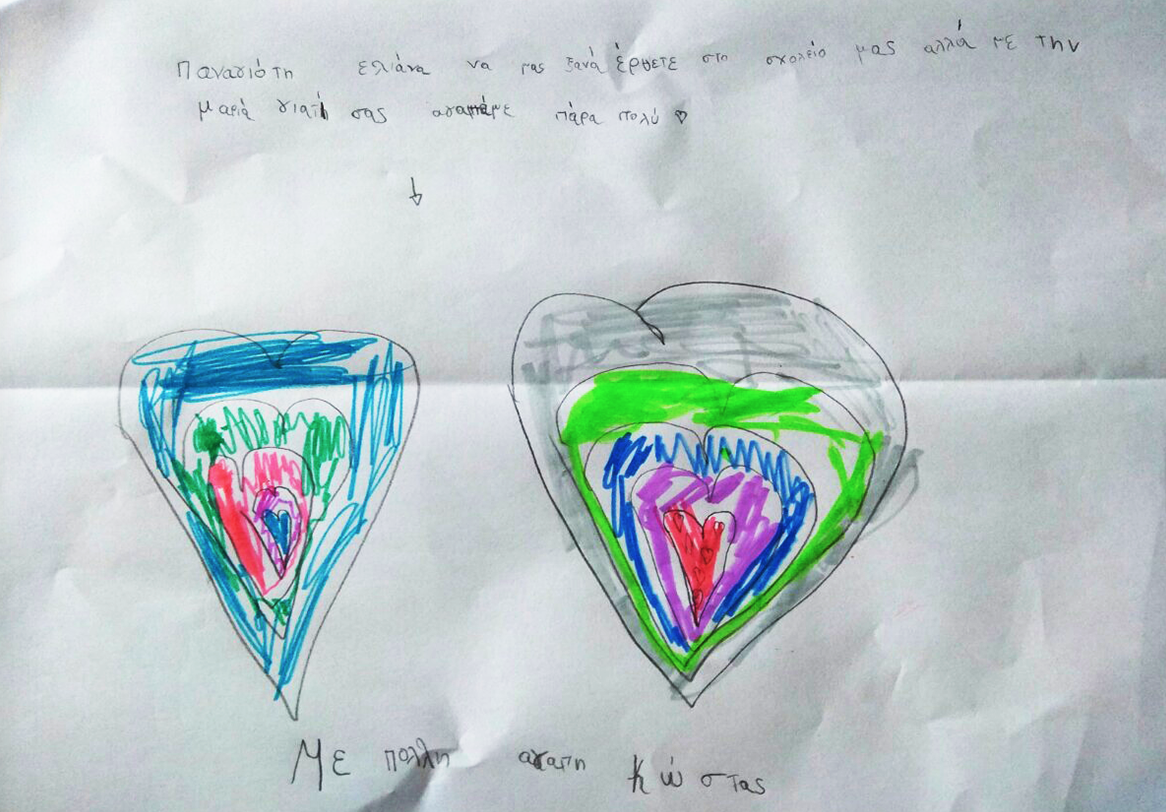 Παναγιότη ελιάνα να μας ξανά έρθετε στο σχολείο μας αλλά με την
μαρία γιατί σας αγαπάμε πάρα πολύ ♡
Με πολλη αγαπη Κώστας